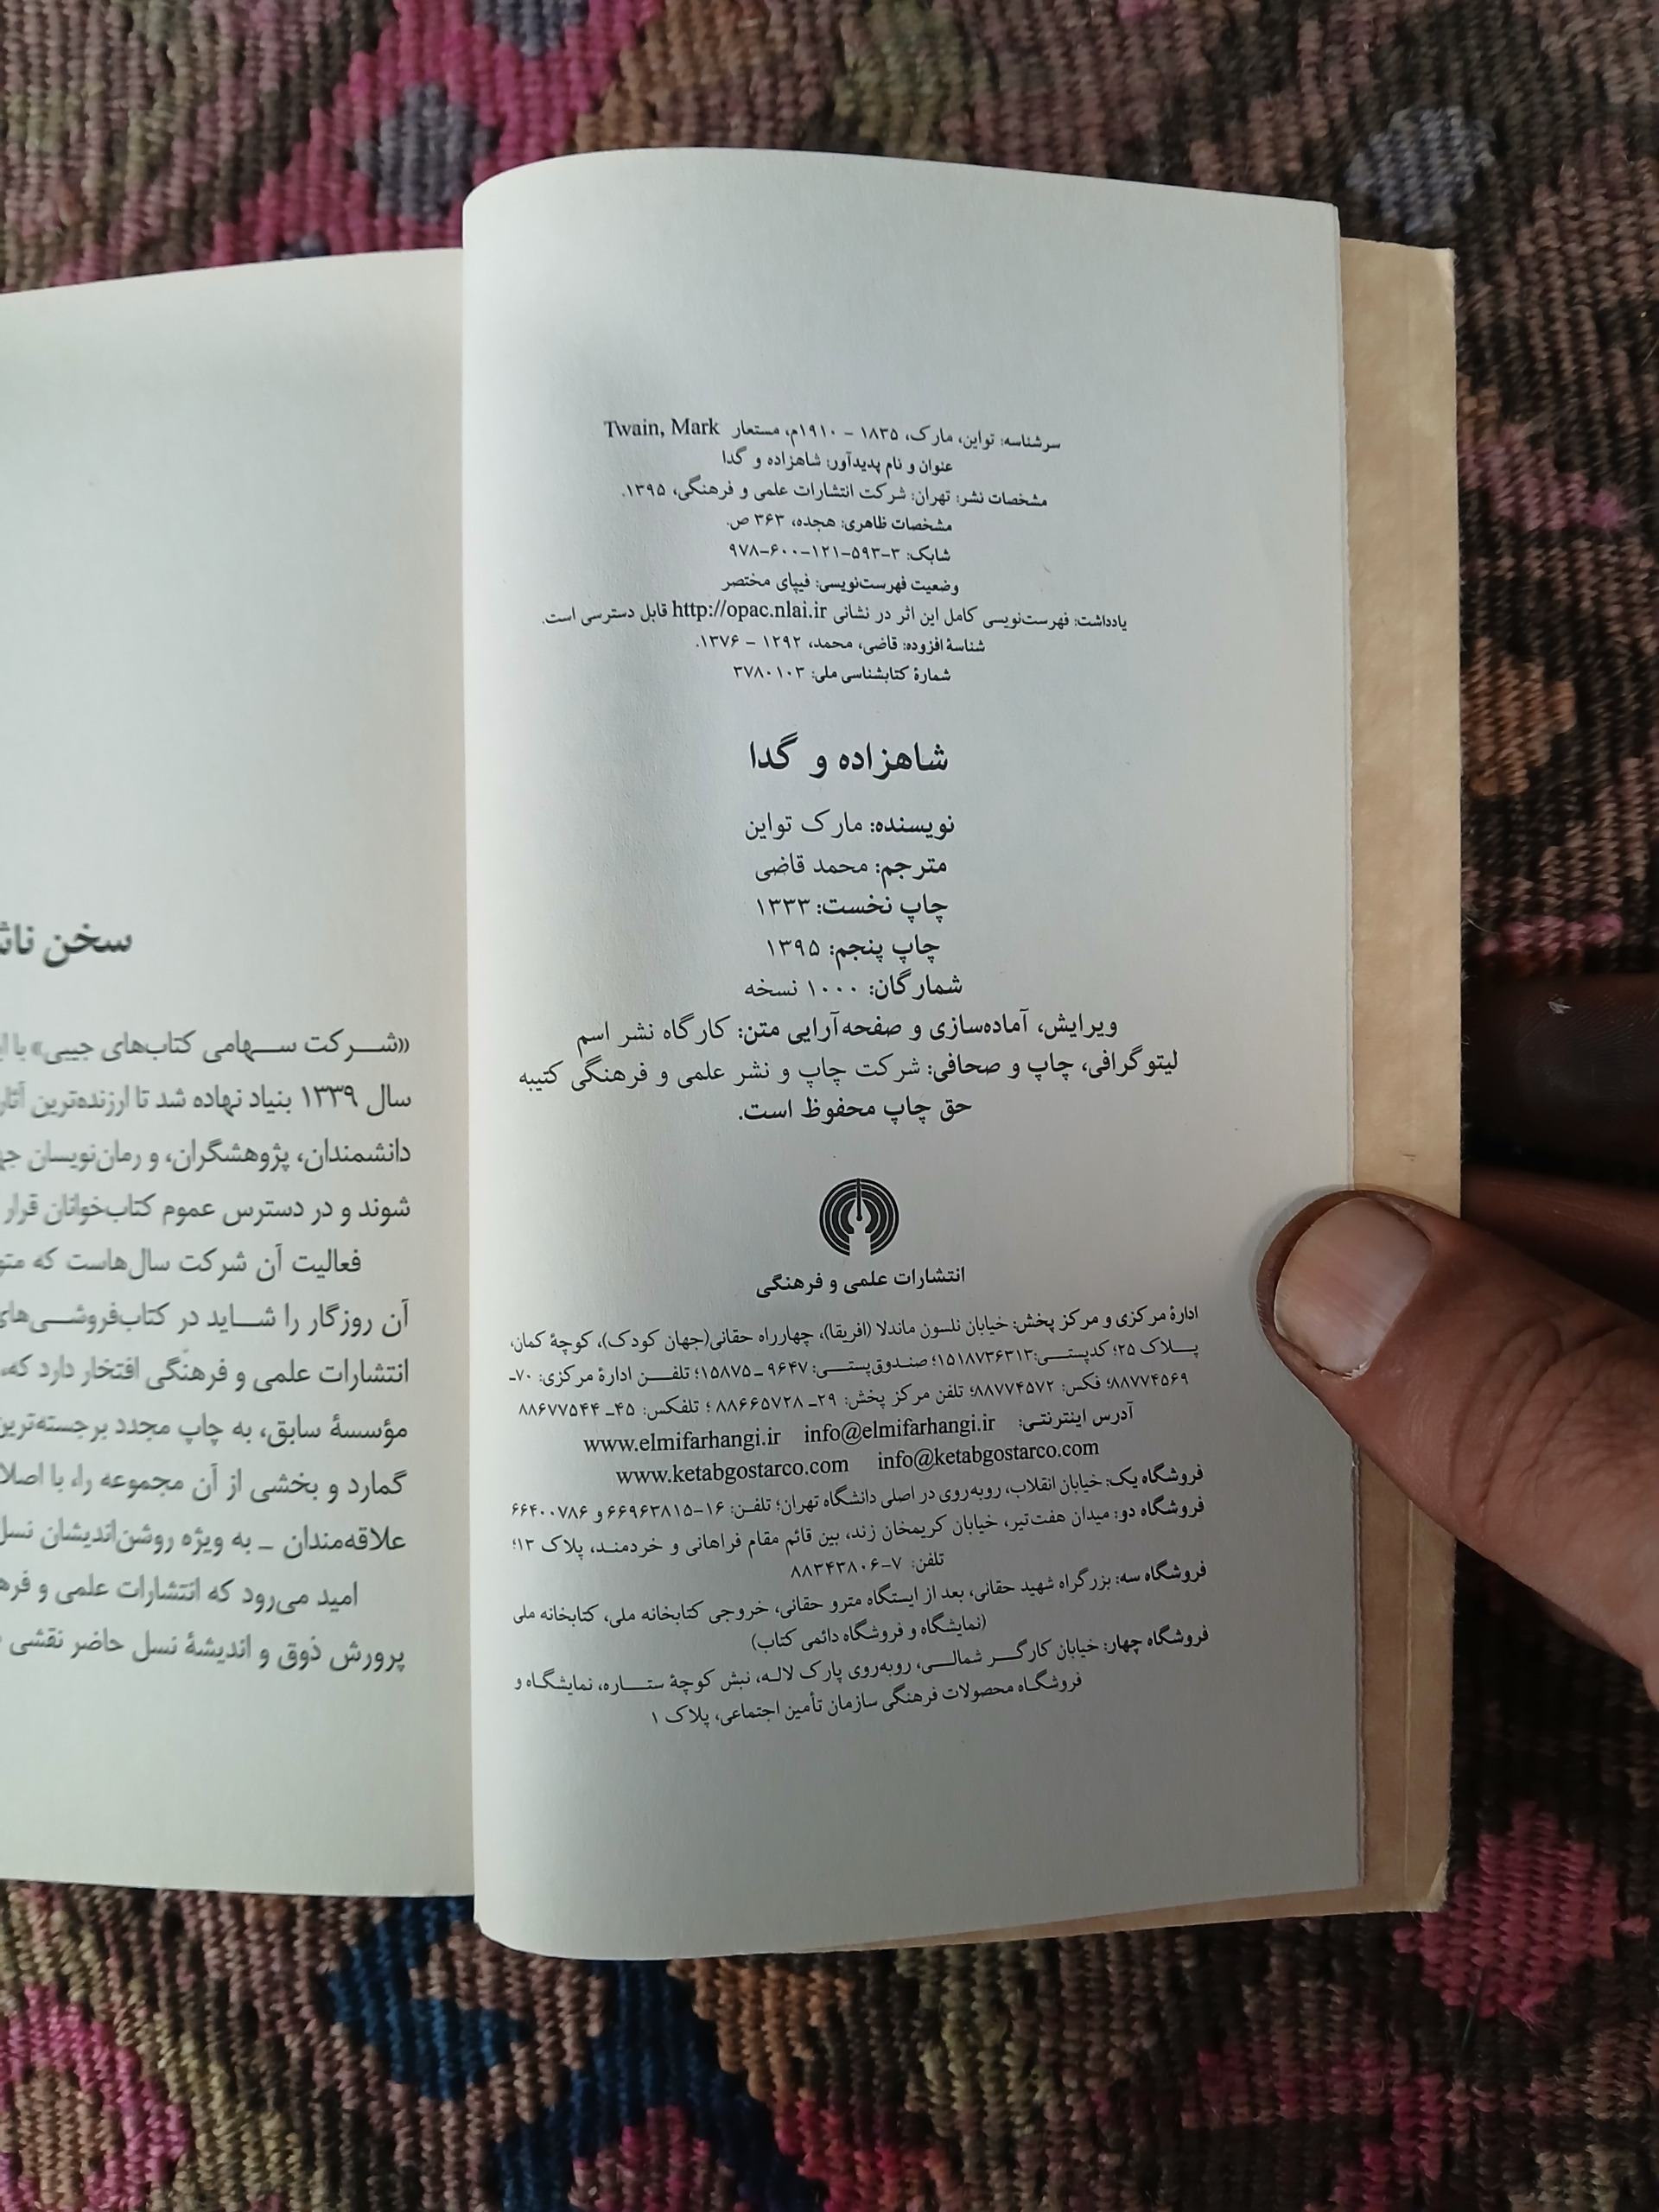 سرشناسه: تواین، مارک، ۱۸۳۵ - ۱۹۱۰م، مستعار Twain, Mark
عنوان و نام پدیدآور: شاهزاده و گدا
مشخصات نشر: تهران: شرکت انتشارات علمی و فرهنگی، ۱۳۹۵.
مشخصات ظاهری: هجده، ۳۶۳ ص.
شابک: ۳-۵۹۳-۱۲۱-۶۰۰-۹۷۸
وضعیت فهرست‌نویسی: فیپای مختصر
یادداشت: فهرست‌نویسی کامل این اثر در نشانی http://opac.nlai.ir قابل دسترسی است.
شناسۀ افزوده: قاضی، محمد، ۱۲۹۲ - ۱۳۷۶.
شمارۀ کتابشناسی ملی: ۳۷۸۰۱۰۳
شاهزاده و گدا
نویسنده: مارک تواین
مترجم: محمد قاضی
چاپ نخست: ۱۳۳۳
چاپ پنجم: ۱۳۹۵
شمارگان: ۱۰۰۰ نسخه
ویرایش، آماده‌سازی و صفحه‌آرایی متن: کارگاه نشر اسم
لیتوگرافی، چاپ و صحافی: شرکت چاپ و نشر علمی و فرهنگی کتیبه
حق چاپ محفوظ است.
انتشارات علمی و فرهنگی
ادارۀ مرکزی و مرکز پخش: خیابان نلسون ماندلا (افریقا)، چهارراه حقانی(جهان کودک)، کوچۀ کمان،
پلاک ۲۵؛ کدپستی:۱۵۱۸۷۳۶۳۱۳؛ صندوق‌پستی: ۹۶۴۷ ـ ۱۵۸۷۵؛ تلفن ادارۀ مرکزی: ۷۰ـ
۸۸۷۷۴۵۶۹؛ فکس: ۸۸۷۷۴۵۷۲؛ تلفن مرکز پخش: ۲۹ـ ۸۸۶۶۵۷۲۸ ؛ تلفکس: ۴۵ـ ۸۸۶۷۷۵۴۴
آدرس اینترنتی: info@elmifarhangi.ir www.elmifarhangi.ir
info@ketabgostarco.com www.ketabgostarco.com
فروشگاه یک: خیابان انقلاب، روبه‌روی در اصلی دانشگاه تهران؛ تلفن: ۱۶-۶۶۹۶۳۸۱۵ و ۶۶۴۰۰۷۸۶
فروشگاه دو: میدان هفت‌تیر، خیابان کریمخان زند، بین قائم مقام فراهانی و خردمند، پلاک ۱۳؛
تلفن: ۷-۸۸۳۴۳۸۰۶
فروشگاه سه: بزرگراه شهید حقانی، بعد از ایستگاه مترو حقانی، خروجی کتابخانه ملی، کتابخانه ملی
(نمایشگاه و فروشگاه دائمی کتاب)
فروشگاه چهار: خیابان کارگر شمالی، روبه‌روی پارک لاله، نبش کوچۀ ستاره، نمایشگاه و
فروشگاه محصولات فرهنگی سازمان تأمین اجتماعی، پلاک ۱
سخن
«شرکت سهامی کتاب‌های جیبی» با
سال ۱۳۳۹ بنیاد نهاده شد تا ارزنده‌ترین
دانشمندان، پژوهشگران، و رمان‌نویسان
شوند و در دسترس عموم کتاب‌خوانان قرار
فعالیت آن شرکت سال‌هاست که
آن روزگار را شاید در کتاب‌فروشی‌های
انتشارات علمی و فرهنگی افتخار دارد که،
مؤسسۀ سابق، به چاپ مجدد برجسته‌ترین
گمارد و بخشی از آن مجموعه را، با
علاقه‌مندان ـ به ویژه روشن‌اندیشان نسل
امید می‌رود که انتشارات علمی و
پرورش ذوق و اندیشۀ نسل حاضر نقشی